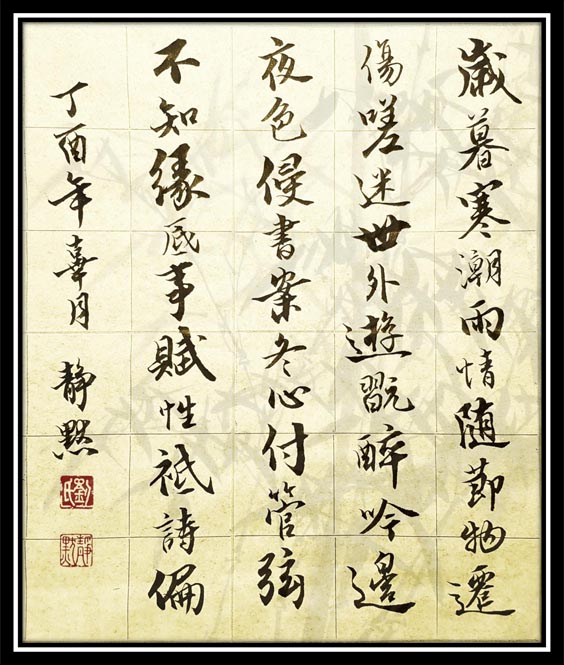 歲暮寒潮雨情随節物遷
傷嗟迷世外遊翫醉吟邊
夜色侵書案冬心付管弦
不知緣底事賦性祗詩偏
丁酉年辜月 靜黙
劉氏
靜默